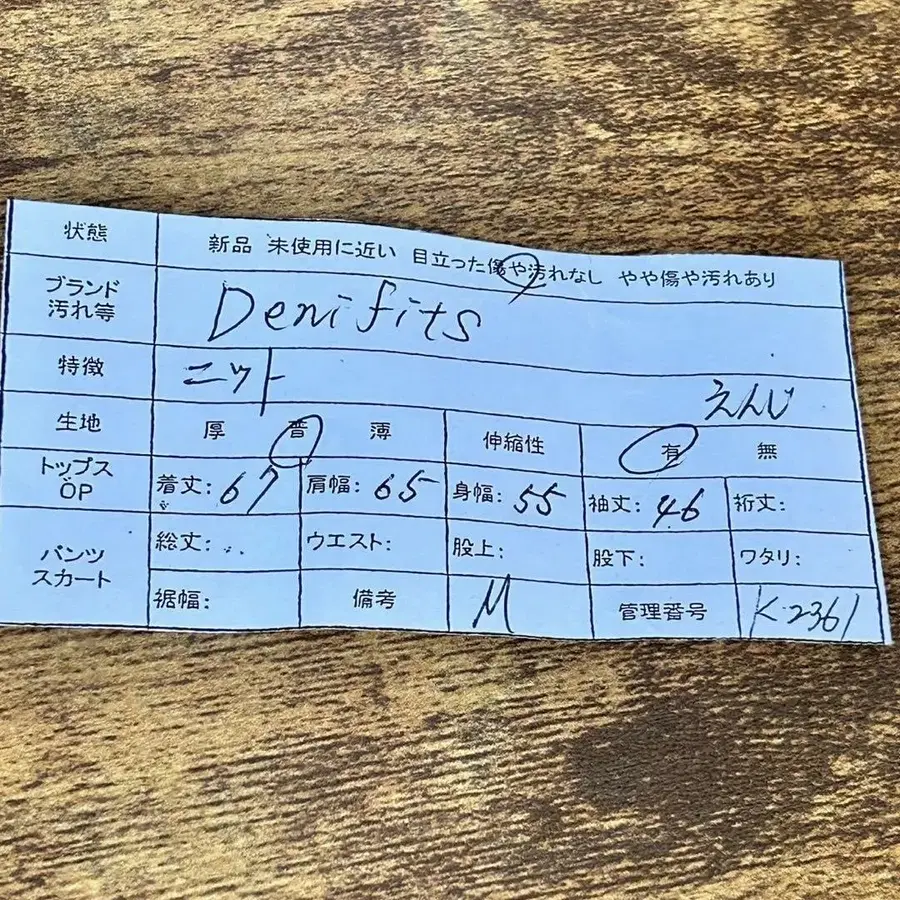 状態 新品 未使用に近い 目立った傷や汚れなし やや傷や汚れあり
ブランド
汚れ等 Denifits
特徴 ニット えんじ
生地 厚 普 薄 伸縮性 有 無
トップス
OP 着丈: 67 肩幅: 65 身幅: 55 袖丈: 46 裄丈:
パンツ
スカート 総丈: ウエスト: 股上: 股下: ワタリ:
裾幅: 備考 M 管理番号 K-2361